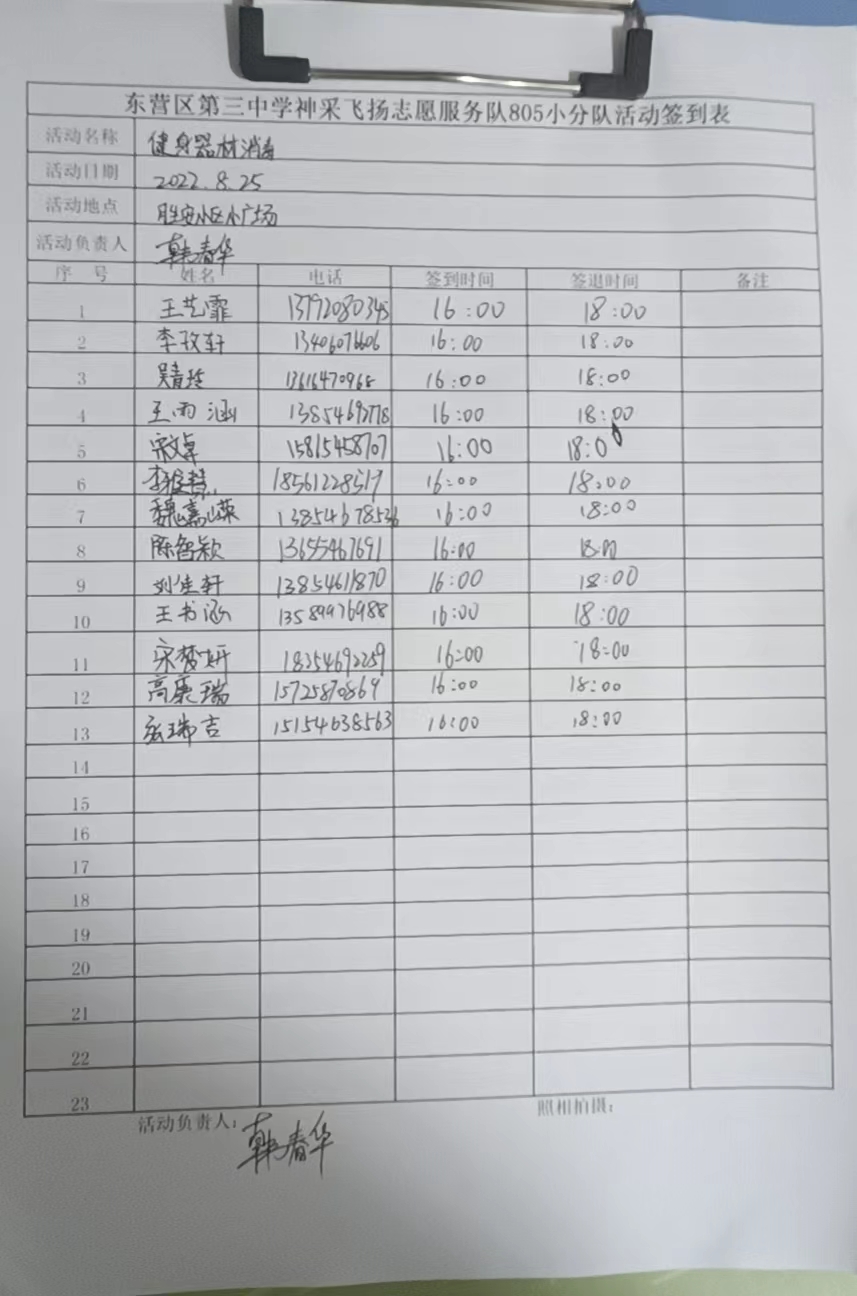 东营区第三中学神采飞扬志愿服务队805小分队活动签到表
活动名称 健身器材消毒
活动日期 2022.8.25
活动地点 胜安小区小广场
活动负责人 韩春华
序号 姓名 电话 签到时间 签退时间 备注
1 王艺霏 13792080345 16:00 18:00
2 李孜轩 16:00 18:00
3 吴青玲 13616470968 16:00 18:00
4 王雨涵 13854692778 16:00 18:00
5 宋文卓 15815458707 16:00 18:00
6 18561228517 16:00 18:00
7 魏嘉嵘 13854678536 16:00 18:00
8 陈智颖 13655467691 16:00 18:00
9 刘佳轩 13854611870 16:00 18:00
10 王书涵 13589976988 16:00 18:00
11 宋梦妍 18254692259 16:00 18:00
12 高康瑞 15725870869 16:00 18:00
13 瑞吉 15154638563 16:00 18:00
14
15
16
17
18
19
20
21
22
23
活动负责人: 韩春华 照相拍摄: